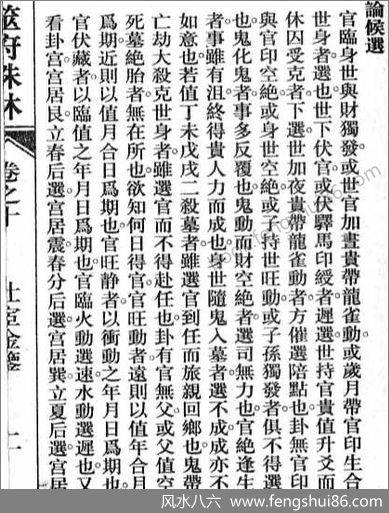 論候選
官臨身世與財獨發或世官加晝貴帶龍雀動或歲月帶官印生合
世身者選也世下伏官或伏驛馬印綬者遲選世持官貴值升爻而
休囚受克者下選世加夜貴帶龍雀動者方催選陪點也卦無官印
與官印空絶或身世空絶或子持世旺動或子孫獨發者俱不得選
也鬼化鬼者事多反覆也鬼動而財空絶者選司無力也官絶逢生
者事雖有沮終得貴人力而成也身世隨鬼入墓者選不成成亦不
如意也若值丁未戊戌二殺墓者雖選官到任而旅親回鄉也鬼帶
亡劫大殺克世身者雖選官而不得赴任也卦有官無父或父值空
死墓絶胎者無在所也欲知何日得官官旺動者遠則以值年合月
爲期近則以值月合日爲期也官旺靜者以衝動之年月日爲期也
官伏藏者以臨值之年月日爲期也官臨火動選速水動選遲也又
看卦宮宮居艮立春后選宮居震春分后選宮居巽立夏后選宮居
筮府珠林 卷之十 仕宦金鑑 二
风水八六 - www.fengshui86.com